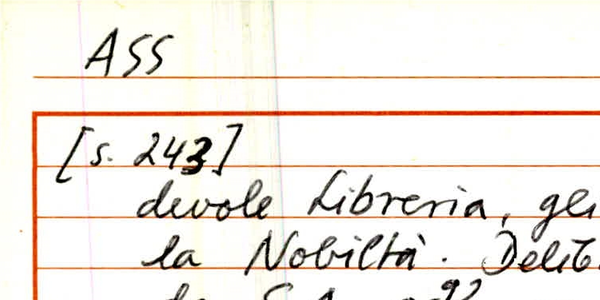 ASS
[s. 243]
devole Libreria, gli
la Nobiltà. Delib.